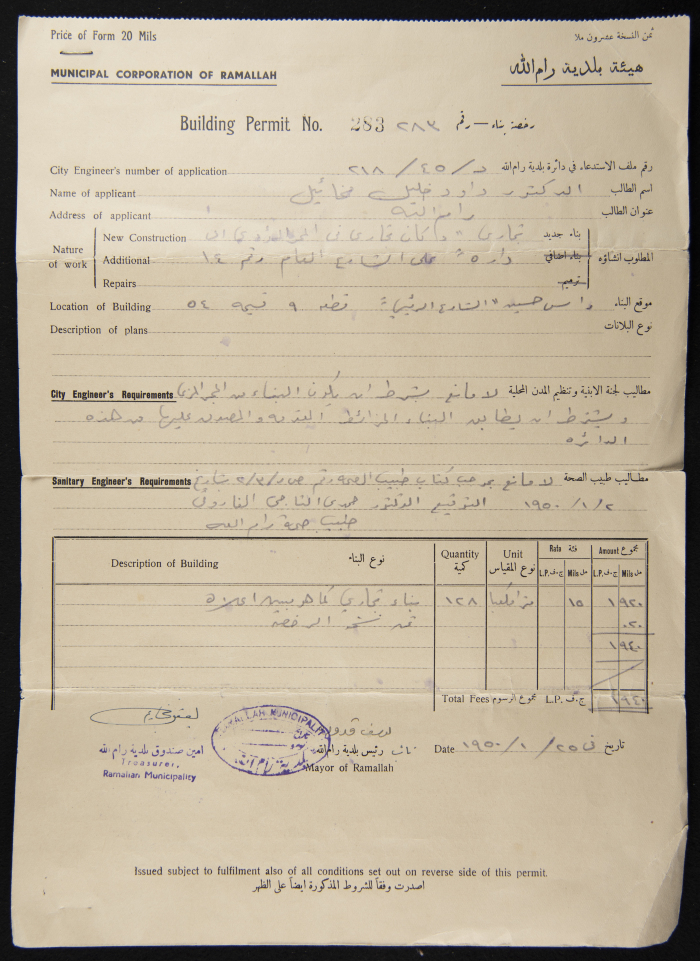 Price of Form 20 Mils ثمن النسخة عشرون ملا
MUNICIPAL CORPORATION OF RAMALLAH هيئة بلدية رام الله
Building Permit No. 283 ٢٨٣ رخصة بناء — رقم
City Engineer's number of application د/٤٥/٢١٨ رقم ملف الاستدعاء في دائرة بلدية رام الله
Name of applicant الدكتور داود خليل مخائيل اسم الطالب
Address of applicant رام الله عنوان الطالب
Nature of work المطلوب انشاؤه
New Construction تجاري دكان تجاري في بناء جديد
Additional على الشارع العام رقم ١٤ بناء اضافي
Repairs ترميم
Location of Building الشارع الرئيسي قطعه ٩ قسيمه ٥٤ موقع البناء
Description of plans نوع البلانات
City Engineer's Requirements لا مانع بشرط ان يكون البناء من الحجر مطاليب لجنة الابنية وتنظيم المدن المحلية
ويشترط ان يطابق البناء الخرائط المقدمه والمصدق عليها من هذه
الدائره
Sanitary Engineer's Requirements لا مانع بموجب كتاب طبيب الصحة رقم ص ر/٢/٣ بتاريخ مطاليب طبيب الصحة
١٩٥٠/١/٢ التوقيع الدكتور حمدي التاجي الفاروقي
طبيب صحة رام الله
Description of Building نوع البناء Quantity كمية Unit نوع المقياس Rate فئة Amount مجموع
L.P. ج.ف. Mils مل L.P. ج.ف. Mils مل
بناء تجاري كما هو مبين اعلاه ١٢٨ متر مكعب ١٥ ١ ٩٢٠
ثمن نسخة الرخصة ٠٢٠
١ ٩٤٠
Total Fees مجموع الرسوم L.P. ج.ف. ١ ٩٤٠
RAMALLAH MUNICIPALITY
بلدية رام الله
امين صندوق بلدية رام الله
Treasurer,
Ramallah Municipality
نائب رئيس بلدية رام الله
Mayor of Ramallah
Date ١٩٥٠/١/٢٥ في تاريخ
Issued subject to fulfilment also of all conditions set out on reverse side of this permit.
اصدرت وفقاً للشروط المذكورة ايضاً على الظهر